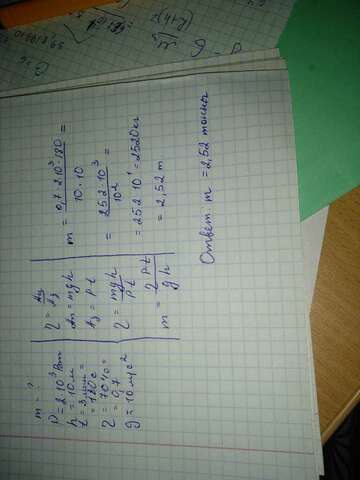 m = ?
P = 2·10³ Вт
h = 10 м
t = 3 мин =
= 180 с
η = 70% =
= 0,7
g = 10 м/с²
η = Aп/Aз
Aп = mgh
Aз = P·t
η = mgh/P t
m = η P·t/g h
m = 0,7·2·10³·180/10·10 =
= 252·10³/10² =
= 252·10¹ = 2520 кг
= 2,52 т
Ответ: m = 2,52 тонны